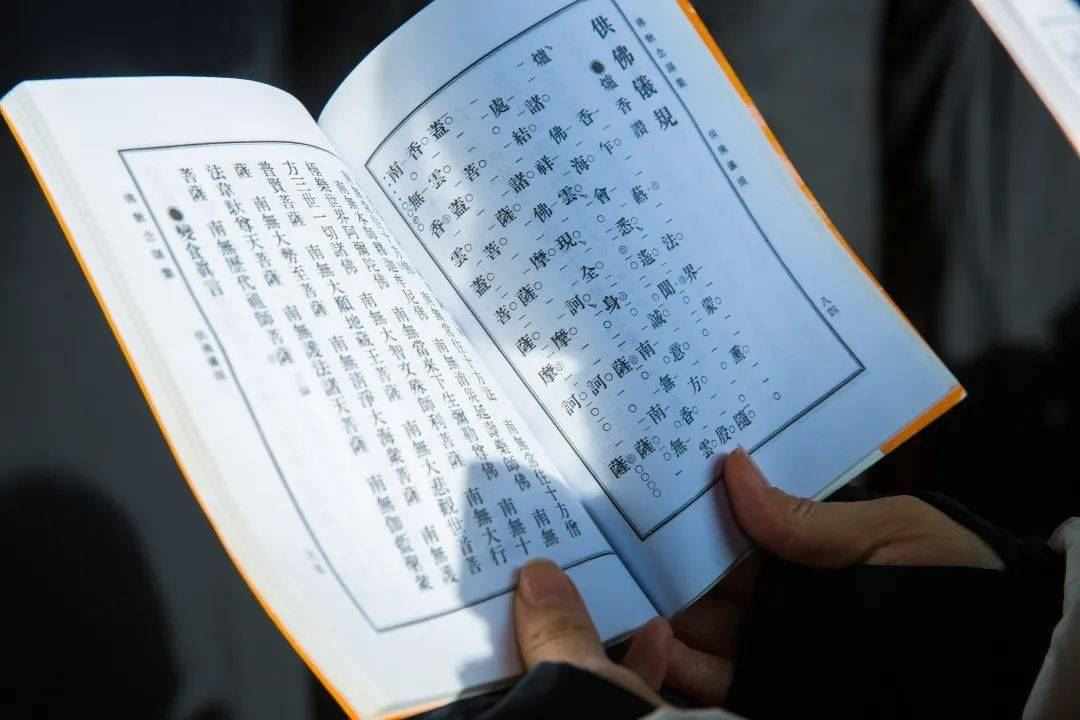 佛教念誦集
供佛儀規
八四
供佛儀規
●爐香讚
爐香乍爇法界蒙熏
諸佛海會悉遙聞隨
處結祥雲誠意方殷
諸佛現全身南無香雲
蓋菩薩摩訶薩南無
香雲蓋菩薩摩訶薩
南無香雲蓋菩薩摩訶薩
南無常住十方法 南無常住十方僧
南無本師釋迦牟尼佛 南無消災延壽藥師佛 南無
極樂世界阿彌陀佛 南無當來下生彌勒尊佛 南無十
方三世一切諸佛 南無大智文殊師利菩薩 南無大行
普賢菩薩 南無大願地藏王菩薩 南無大悲觀世音菩
薩 南無大勢至菩薩 南無清淨大海衆菩薩 南無護
法韋馱尊天菩薩 南無護法諸天菩薩 南無伽藍聖衆
菩薩 南無歷代祖師菩薩
●變食眞言
佛教念誦集
供佛儀規